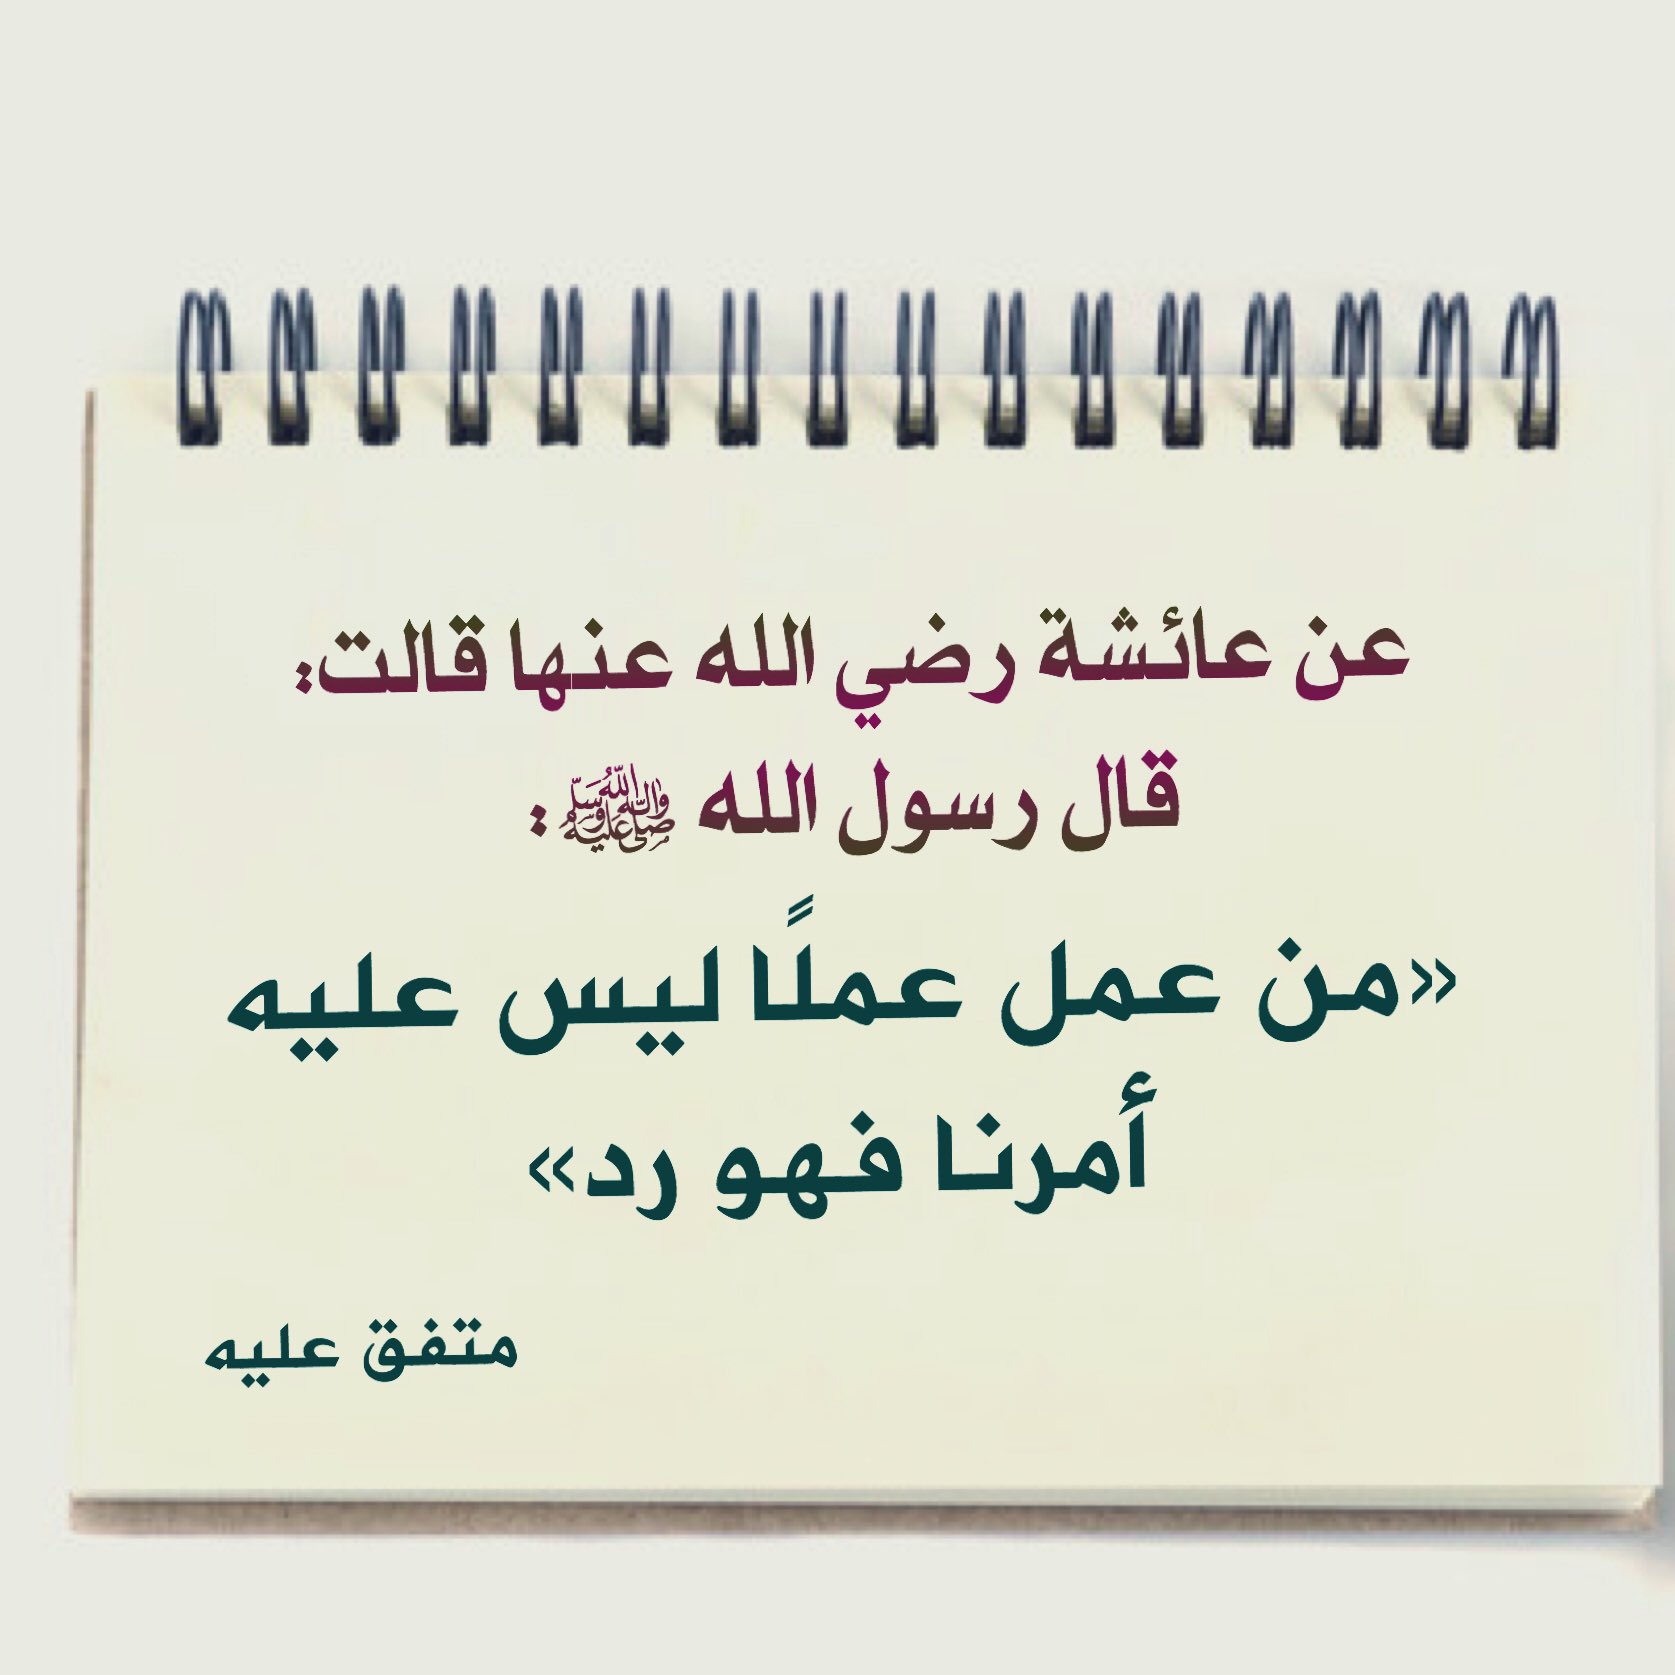 عن عائشة رضي الله عنها قالت:
قال رسول الله ﷺ :
«من عمل عملًا ليس عليه
أمرنا فهو رد»
متفق عليه